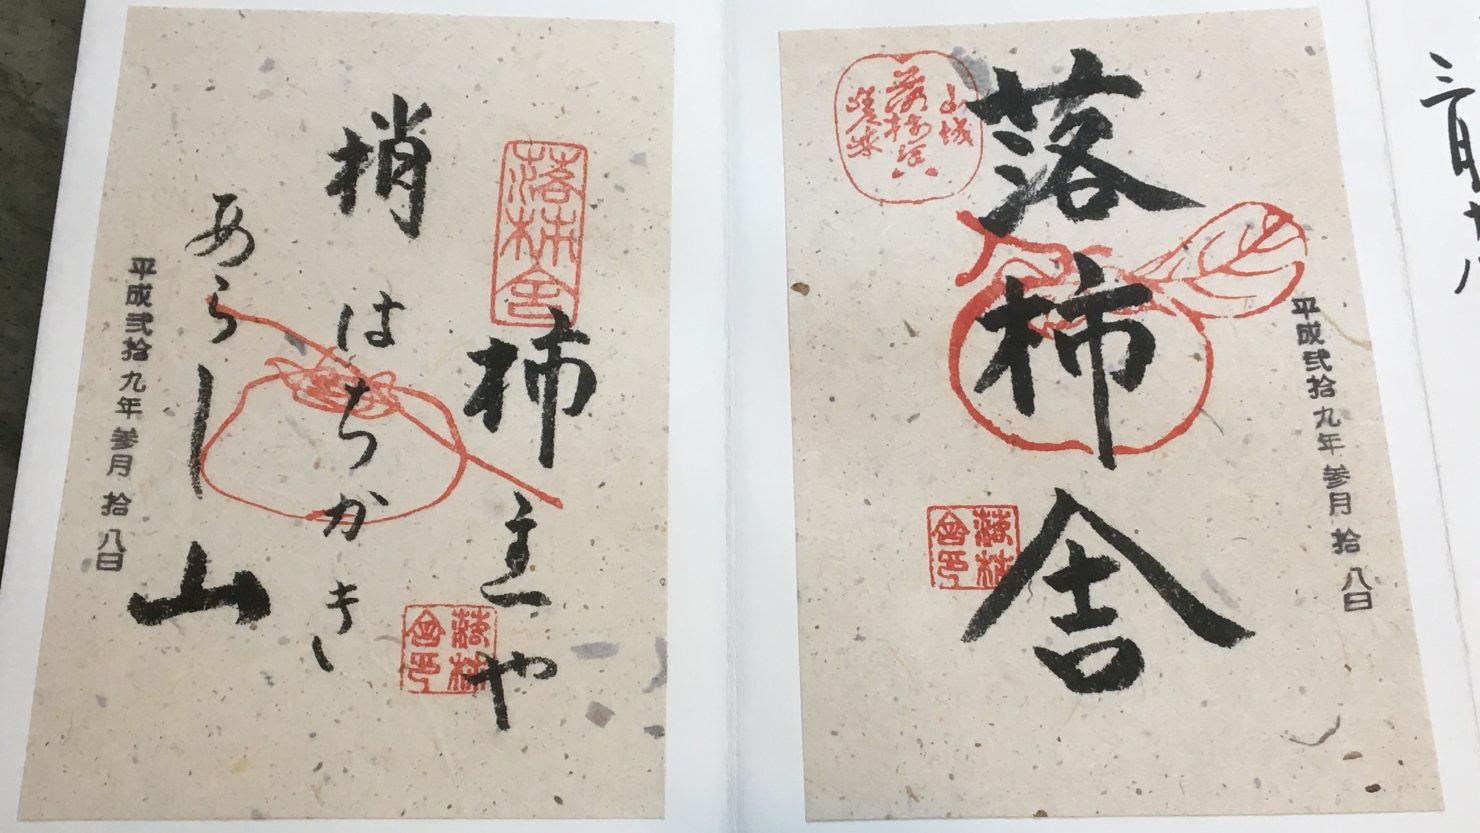 落柿舎
山城
落柿舎
去来
平成弐拾九年参月拾八日
落柿舎
柿主や
梢はちかき
あらし山
平成弐拾九年参月拾八日